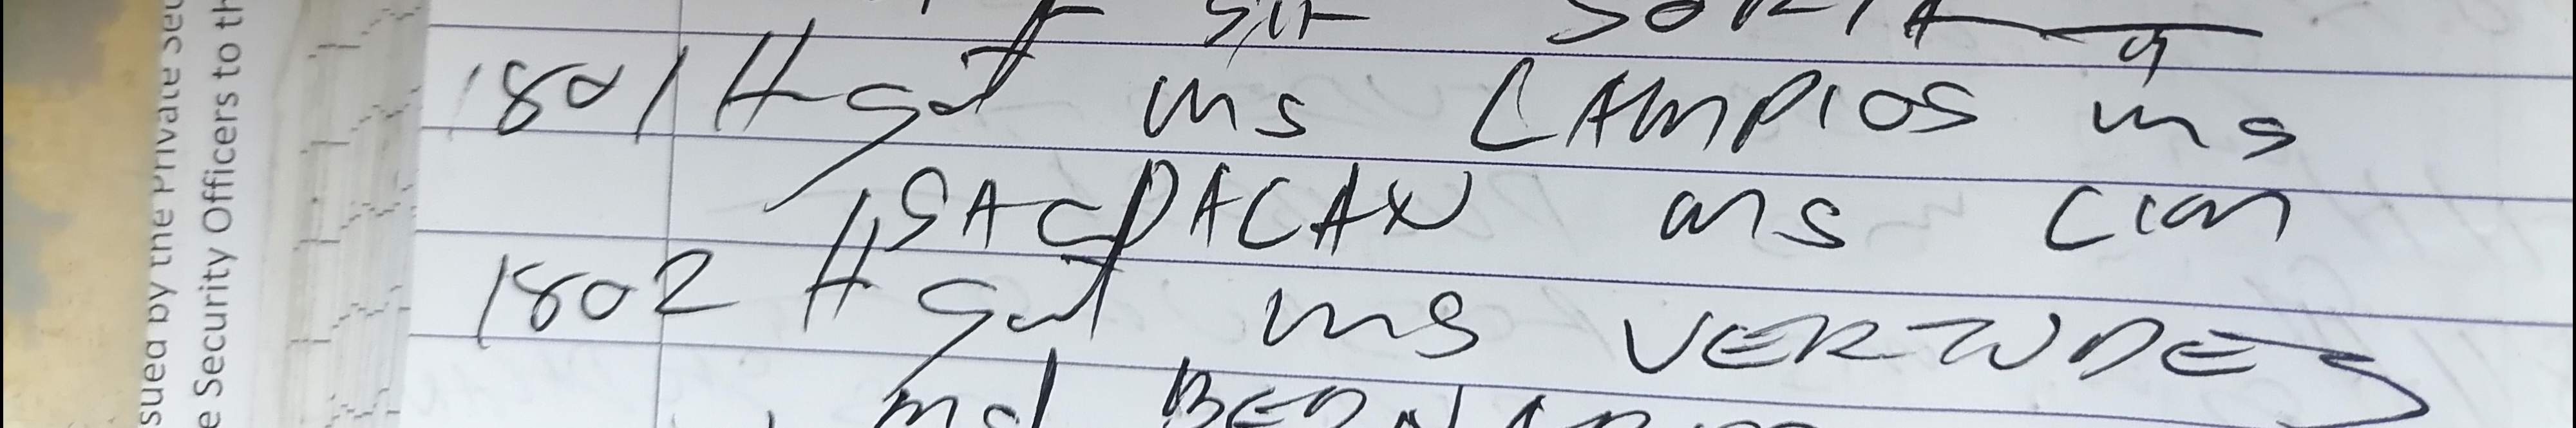 sued by the Private Sec
e Security Officers to th
sir SORIA
1801 H gst ms CAMPIOS ms
SACDACAN ms Cian
1802 H gst ms VERTUDES